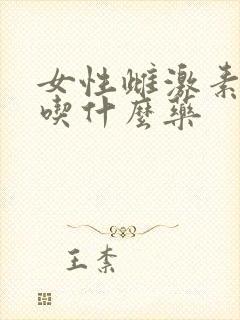 女性雌激素
喫什麼藥
王柰